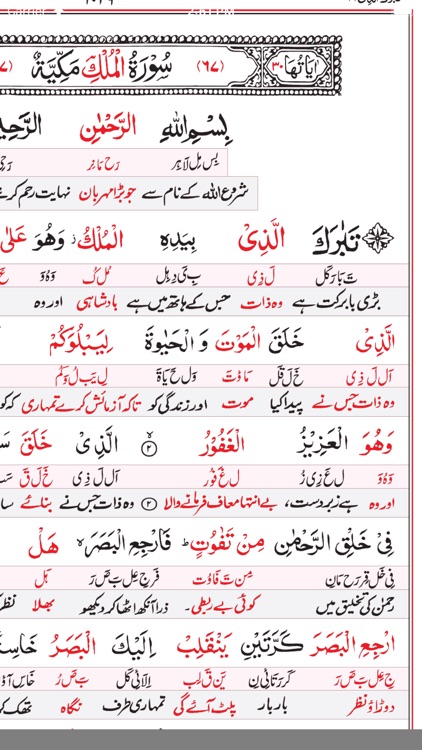 اٰيَاتُهَا ٣٠ (٦٧) سُوْرَةُ الْمُلْكِ مَكِّيَّةٌ
بِسْمِ اللّٰهِ الرَّحْمٰنِ
بِس مِل لَا هِر رَح مَا نِر
شروع اللہ کے نام سے جو بڑا مہربان نہایت رحم کرنے
تَبٰرَكَ الَّذِیْ بِیَدِهِ الْمُلْكُ وَهُوَ عَلٰی
تَ بَا رَ كَل لَ ذِی بِ یَ دِ هِل مُل كُ وَ هُ وَ
بڑی بابرکت ہے وہ ذات جس کے ہاتھ میں ہے بادشاہی اور وہ
الَّذِیْ خَلَقَ الْمَوْتَ وَ الْحَیٰوةَ لِیَبْلُوَكُمْ
اَل لَ ذِی خَ لَ قَل مَو تَ وَل حَ یَا ةَ لِ یَب لُ وَ كُم
وہ ذات جس نے پیدا کیا موت اور زندگی کو تاکہ آزمائش کرے تمہاری کہ کو
وَهُوَ الْعَزِیْزُ الْغَفُوْرُ ٢ الَّذِیْ خَلَقَ
وَ هُ وَ ل عَ زِی زُ ل غَ فُو رُ اَل لَ ذِی خَ لَ قَ
اور وہ ہے زبردست، بے انتہا معاف فرمانے والا ٢ وہ ذات جس نے بنائے سا
فِیْ خَلْقِ الرَّحْمٰنِ مِنْ تَفٰوُتٍ ؕ فَارْجِعِ الْبَصَرَ ۙ هَلْ
فِی خَل قِر رَح مَا نِ مِن تَ فَا وُت فَر جِ عِل بَ صَ رَ هَل
رحمٰن کی تخلیق میں کوئی بے ربطی۔ ذرا آنکھ اٹھا کر دیکھو بھلا
ارْجِعِ الْبَصَرَ كَرَّتَیْنِ یَنْقَلِبْ اِلَیْكَ الْبَصَرُ
جِ عِل بَ صَ رَ كَر رَ تَا نِ یَن قَ لِب اِ لَا ئِ كَل بَ صَ رُ
دوڑاؤ نظر بار بار پلٹ آئے گی تمہاری طرف نگاہ تھک کر